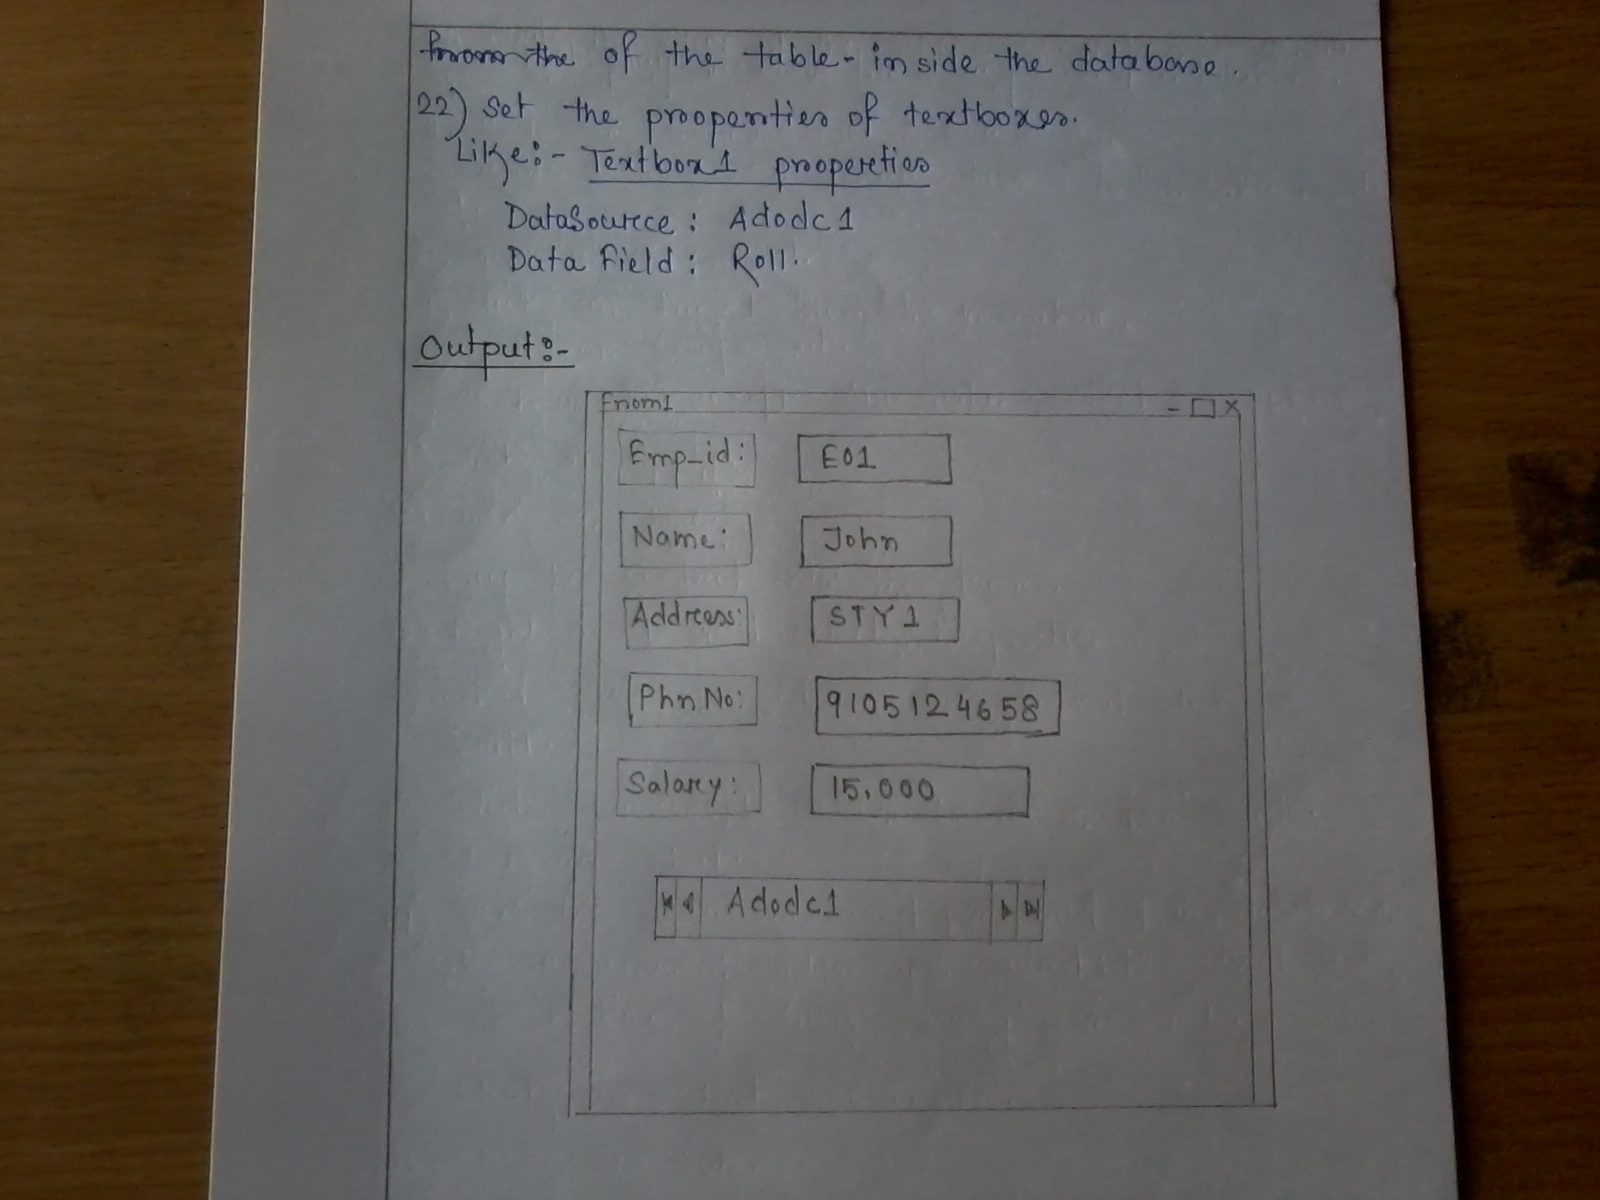 the of the table- inside the database.
22) Set the properties of textboxes.
Like:- Textbox1 properties
DataSource: Adodc1
Data field: Roll.
Output:-
From1
Emp_id: E01
Name: John
Address: STY1
Phn No: 9105124658
Salary: 15,000
Adodc1